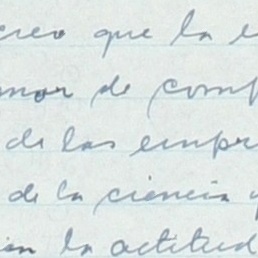 creo que la e
mor de comp
de las empr
de la ciencia y
en la actitud